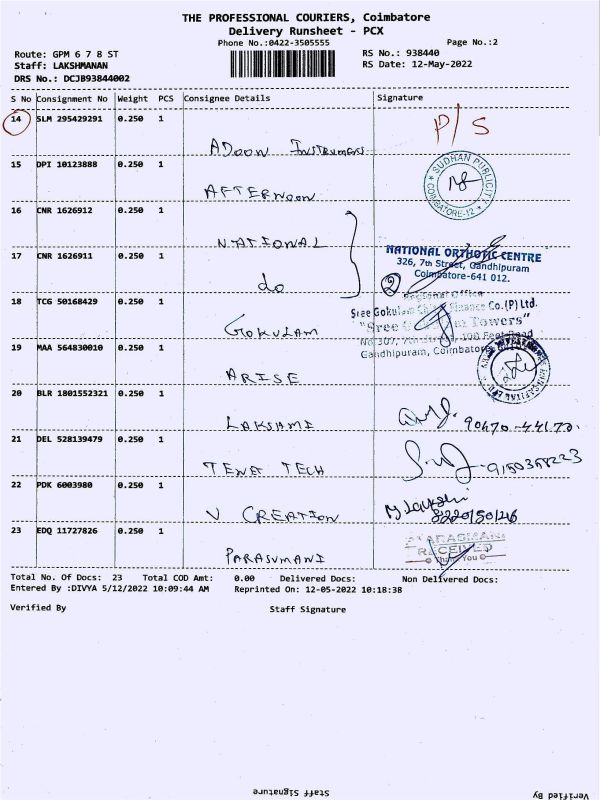 THE PROFESSIONAL COURIERS, Coimbatore
Delivery Runsheet - PCX
Phone No.:0422-3505555
Page No.:2
Route: GPM 6 7 8 ST
Staff: LAKSHMANAN
DRS No.: DCJB93844002
RS No.: 938440
RS Date: 12-May-2022
S No Consignment No Weight PCS Consignee Details Signature
14 SLM 295429291 0.250 1
P/S
ADOON INSTRUMENTS
15 DPI 10123888 0.250 1
SUDHAN PUBLICITY
COIMBATORE-12
AFTERNOON
16 CNR 1626912 0.250 1
NATIONAL
17 CNR 1626911 0.250 1
NATIONAL ORTHOTIC CENTRE
326, 7th Street, Gandhipuram
Coimbatore-641 012.
do
2
18 TCG 50168429 0.250 1
Regional Office
Sree Gokulam Finance Co.(P) Ltd.
"Sree Towers"
No.307, 100 Feet Road
Gandhipuram, Coimbatore
GOKULAM
19 MAA 564830010 0.250 1
ARISE
20 BLR 1801552321 0.250 1
LAKSHMI
21 DEL 528139479 0.250 1
TENET TECH
22 PDK 6003980 0.250 1
V CREATION
23 EDQ 11727826 0.250 1
RECEIVED
Thank You
PARASUMANI
Total No. Of Docs: 23 Total COD Amt: 0.00 Delivered Docs: Non Delivered Docs:
Entered By :DIVYA 5/12/2022 10:09:44 AM Reprinted On: 12-05-2022 10:18:38
Verified By Staff Signature
Staff Signature Verified By